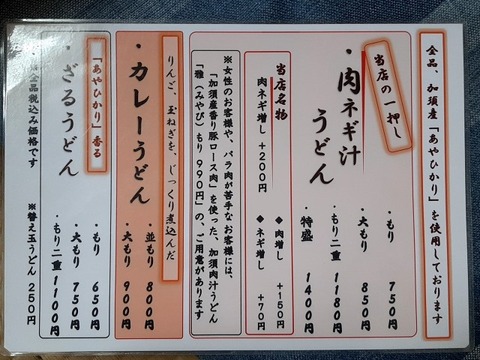 全品、加須産「あやひかり」を使用しております
当店の一押し
・肉ネギ汁
うどん
・もり 750円
・大もり 850円
・もり二重 1180円
・特盛 1400円
当店名物
肉ネギ増し +200円
◆ 肉増し +150円
◆ ネギ増し +70円
※女性のお客様や、バラ肉が苦手なお客様には、
「加須産香り豚ロース肉」を使った、加須肉汁うどん
「雅(みやび)もり 990円」の、ご用意があります
りんご、玉ねぎを、じっくり煮込んだ
・カレーうどん
・並もり 800円
・大もり 900円
「あやひかり」香る
・ざるうどん
・もり 650円
・大もり 750円
・もり二重 1100円
全品税込み価格です
※替え玉うどん 250円